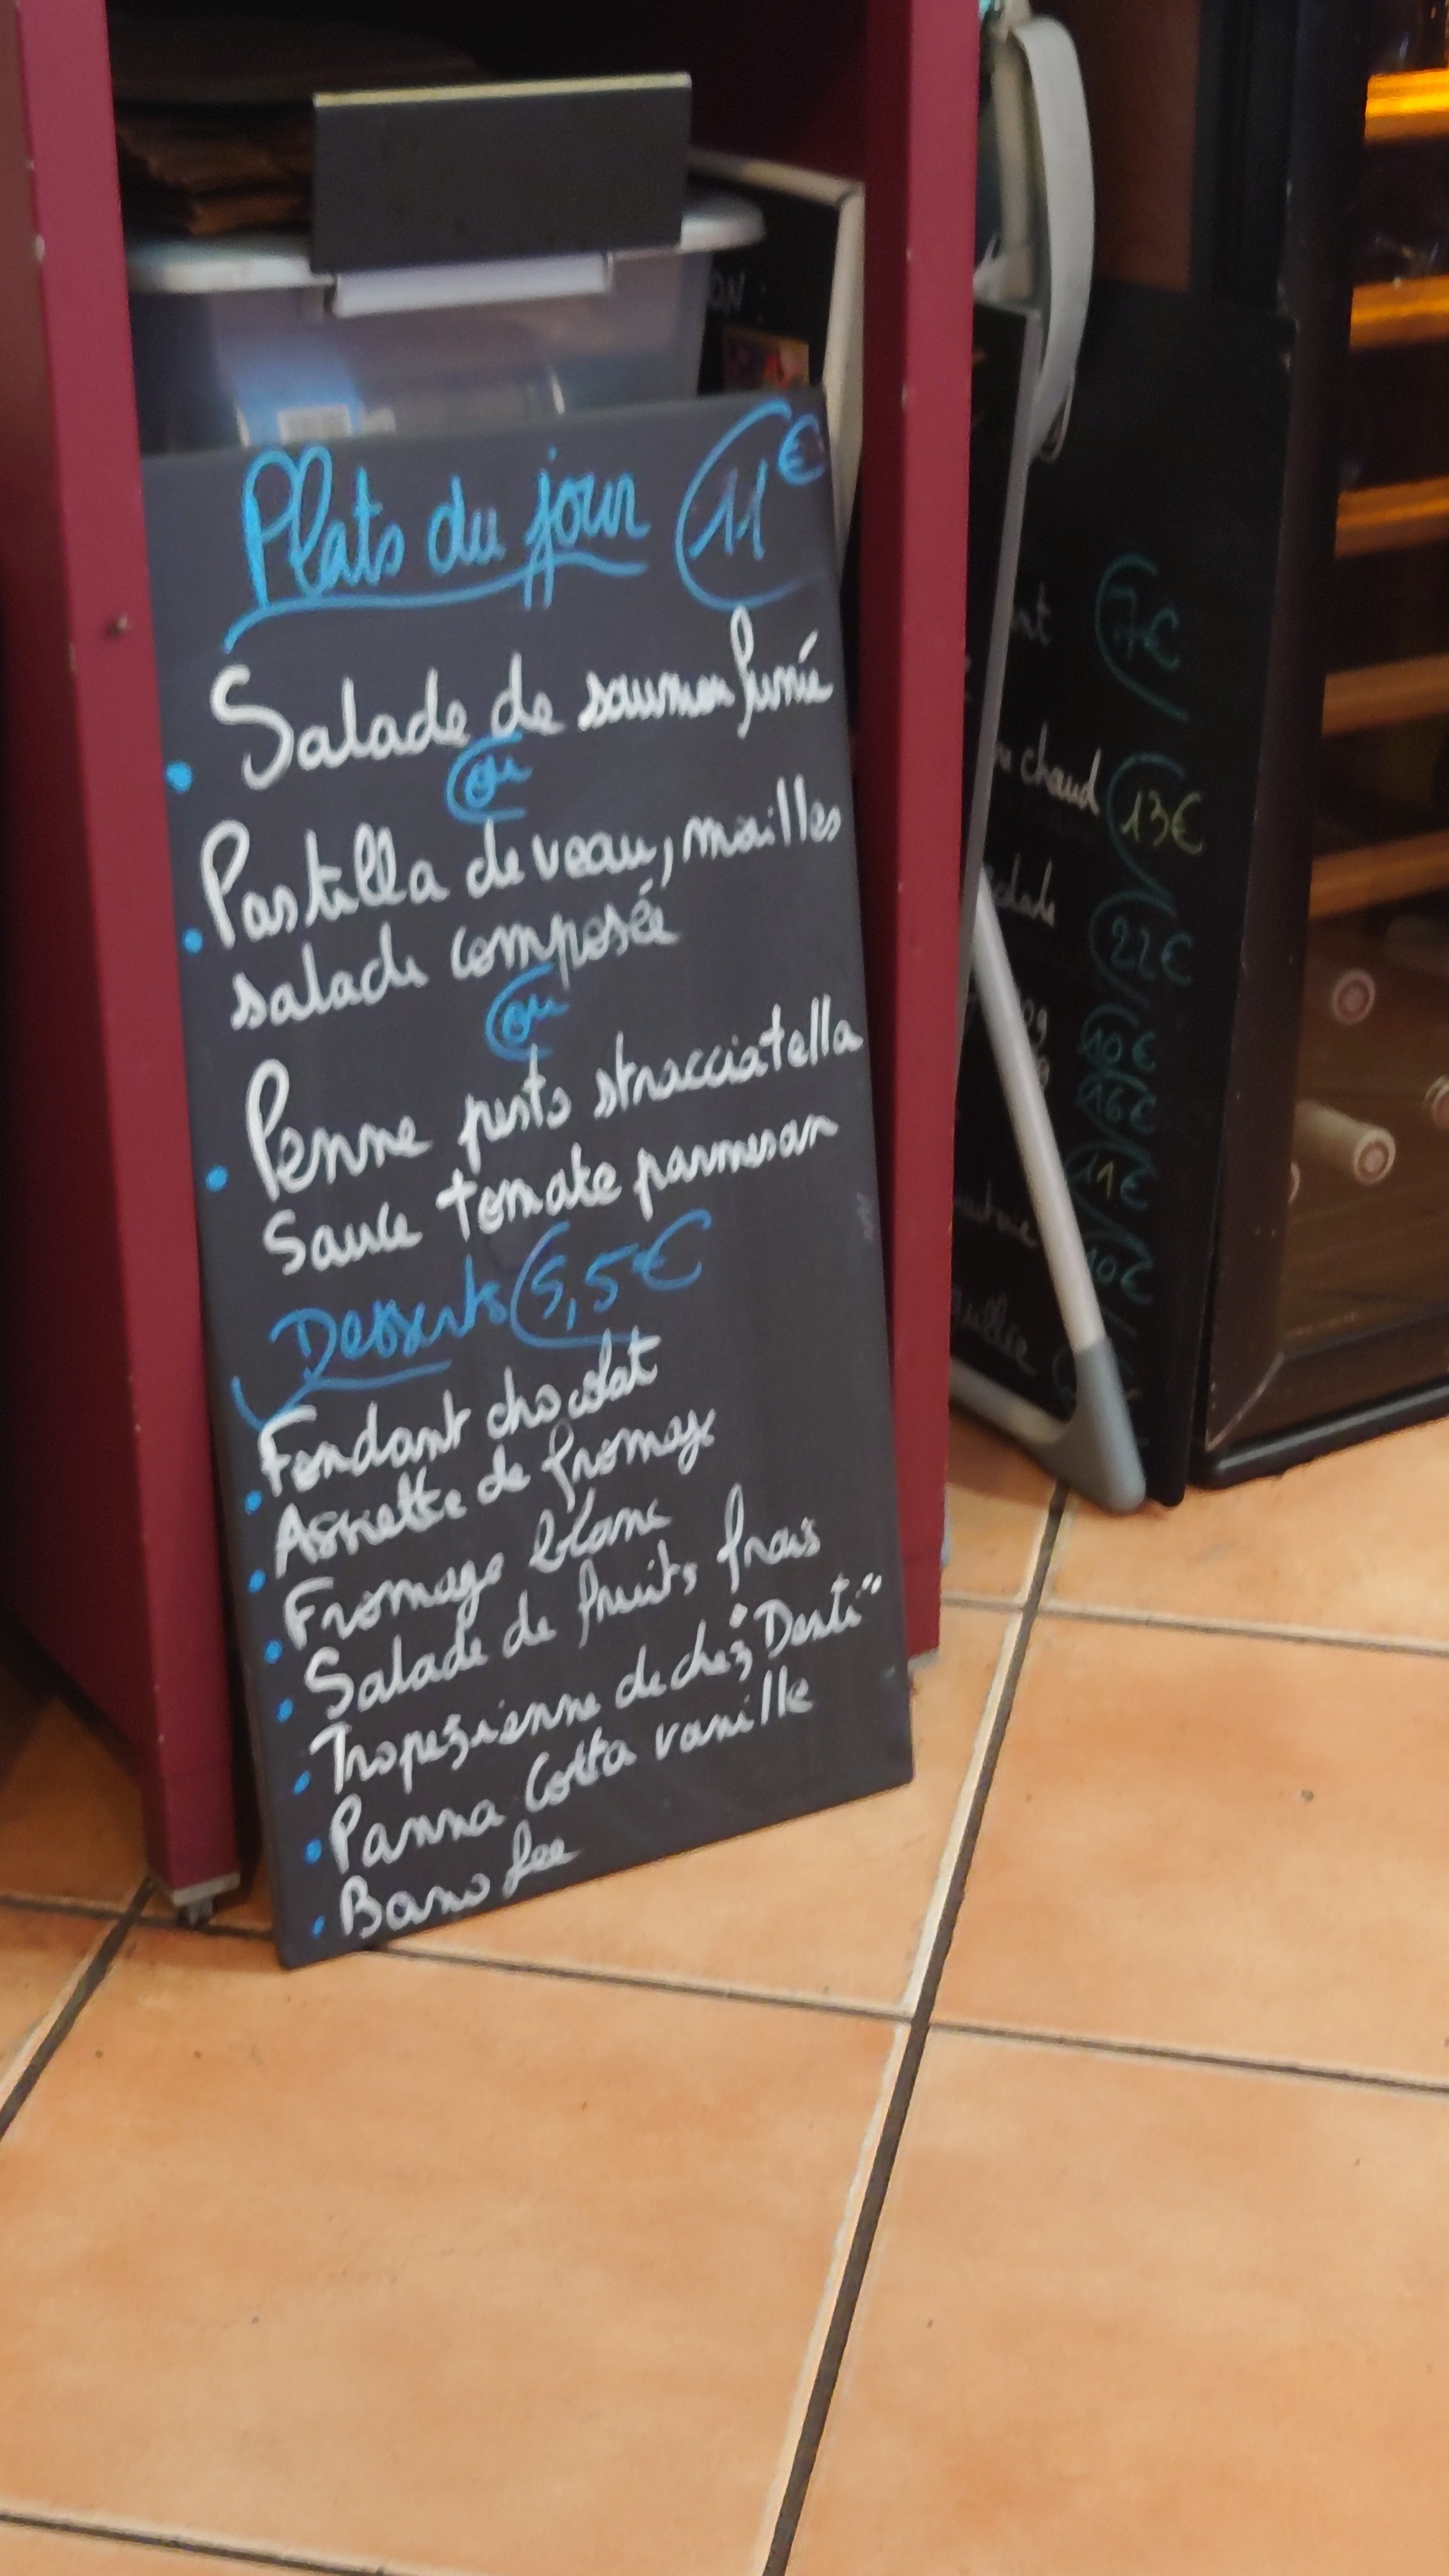 Plats du jour 11€
Salade de saumon fumé
ou
Pastilla de veau,
salade composée
ou
Penne pesto stracciatella
Sauce tomate parmesan
Desserts 5,5€
Fondant chocolat
Assiette de fromage
Fromage blanc
Salade de fruits frais
Tropezienne de chez "Denti"
Panna Cotta vanille
Bano fee
7€
chaud 13€
22€
10€
16€
11€
10€